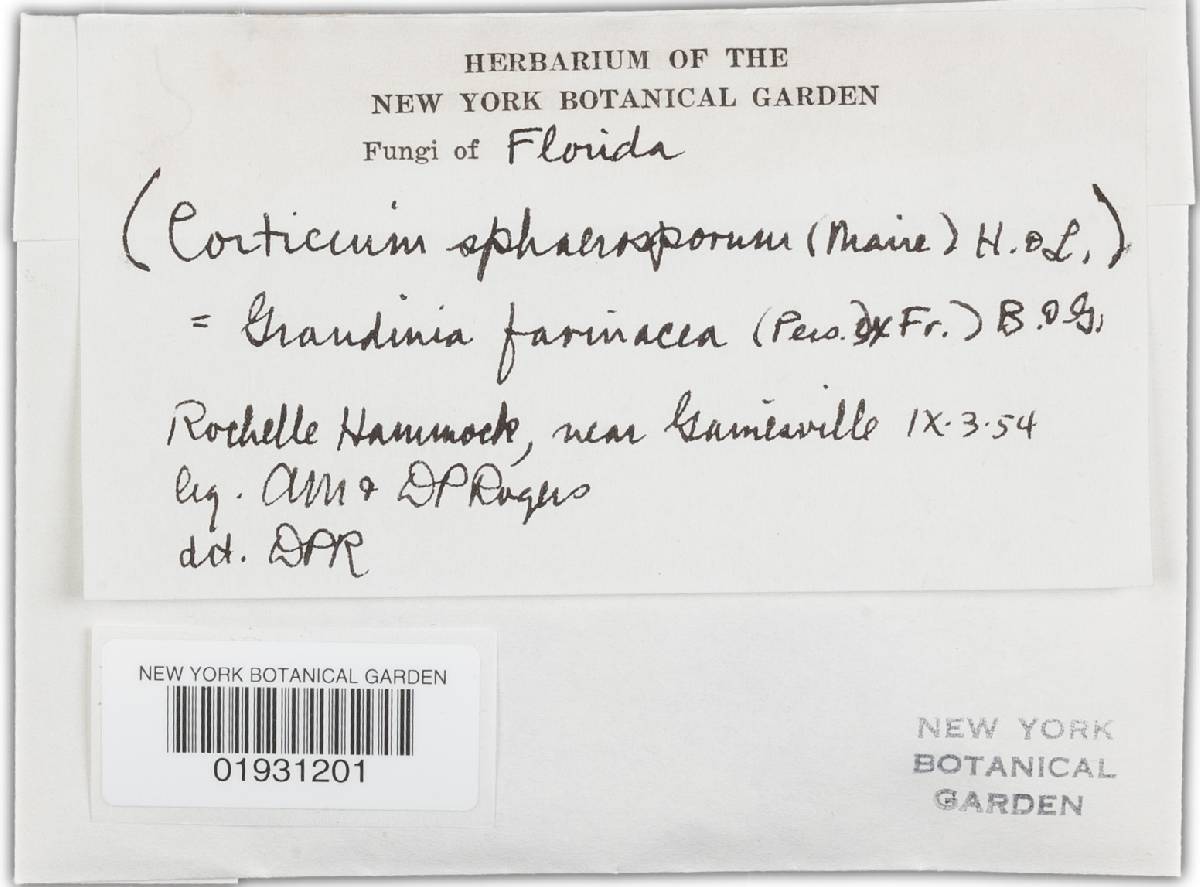 HERBARIUM OF THE
NEW YORK BOTANICAL GARDEN
Fungi of Florida
(Corticium sphaerosporum (Maire) H. & L.)
= Grandinia farinacea (Pers. ex Fr.) B. & G.
Rochelle Hammock, near Gainesville IX·3·54
leg. AM & DP Rogers
det. DPR
NEW YORK BOTANICAL GARDEN
01931201
NEW YORK
BOTANICAL
GARDEN